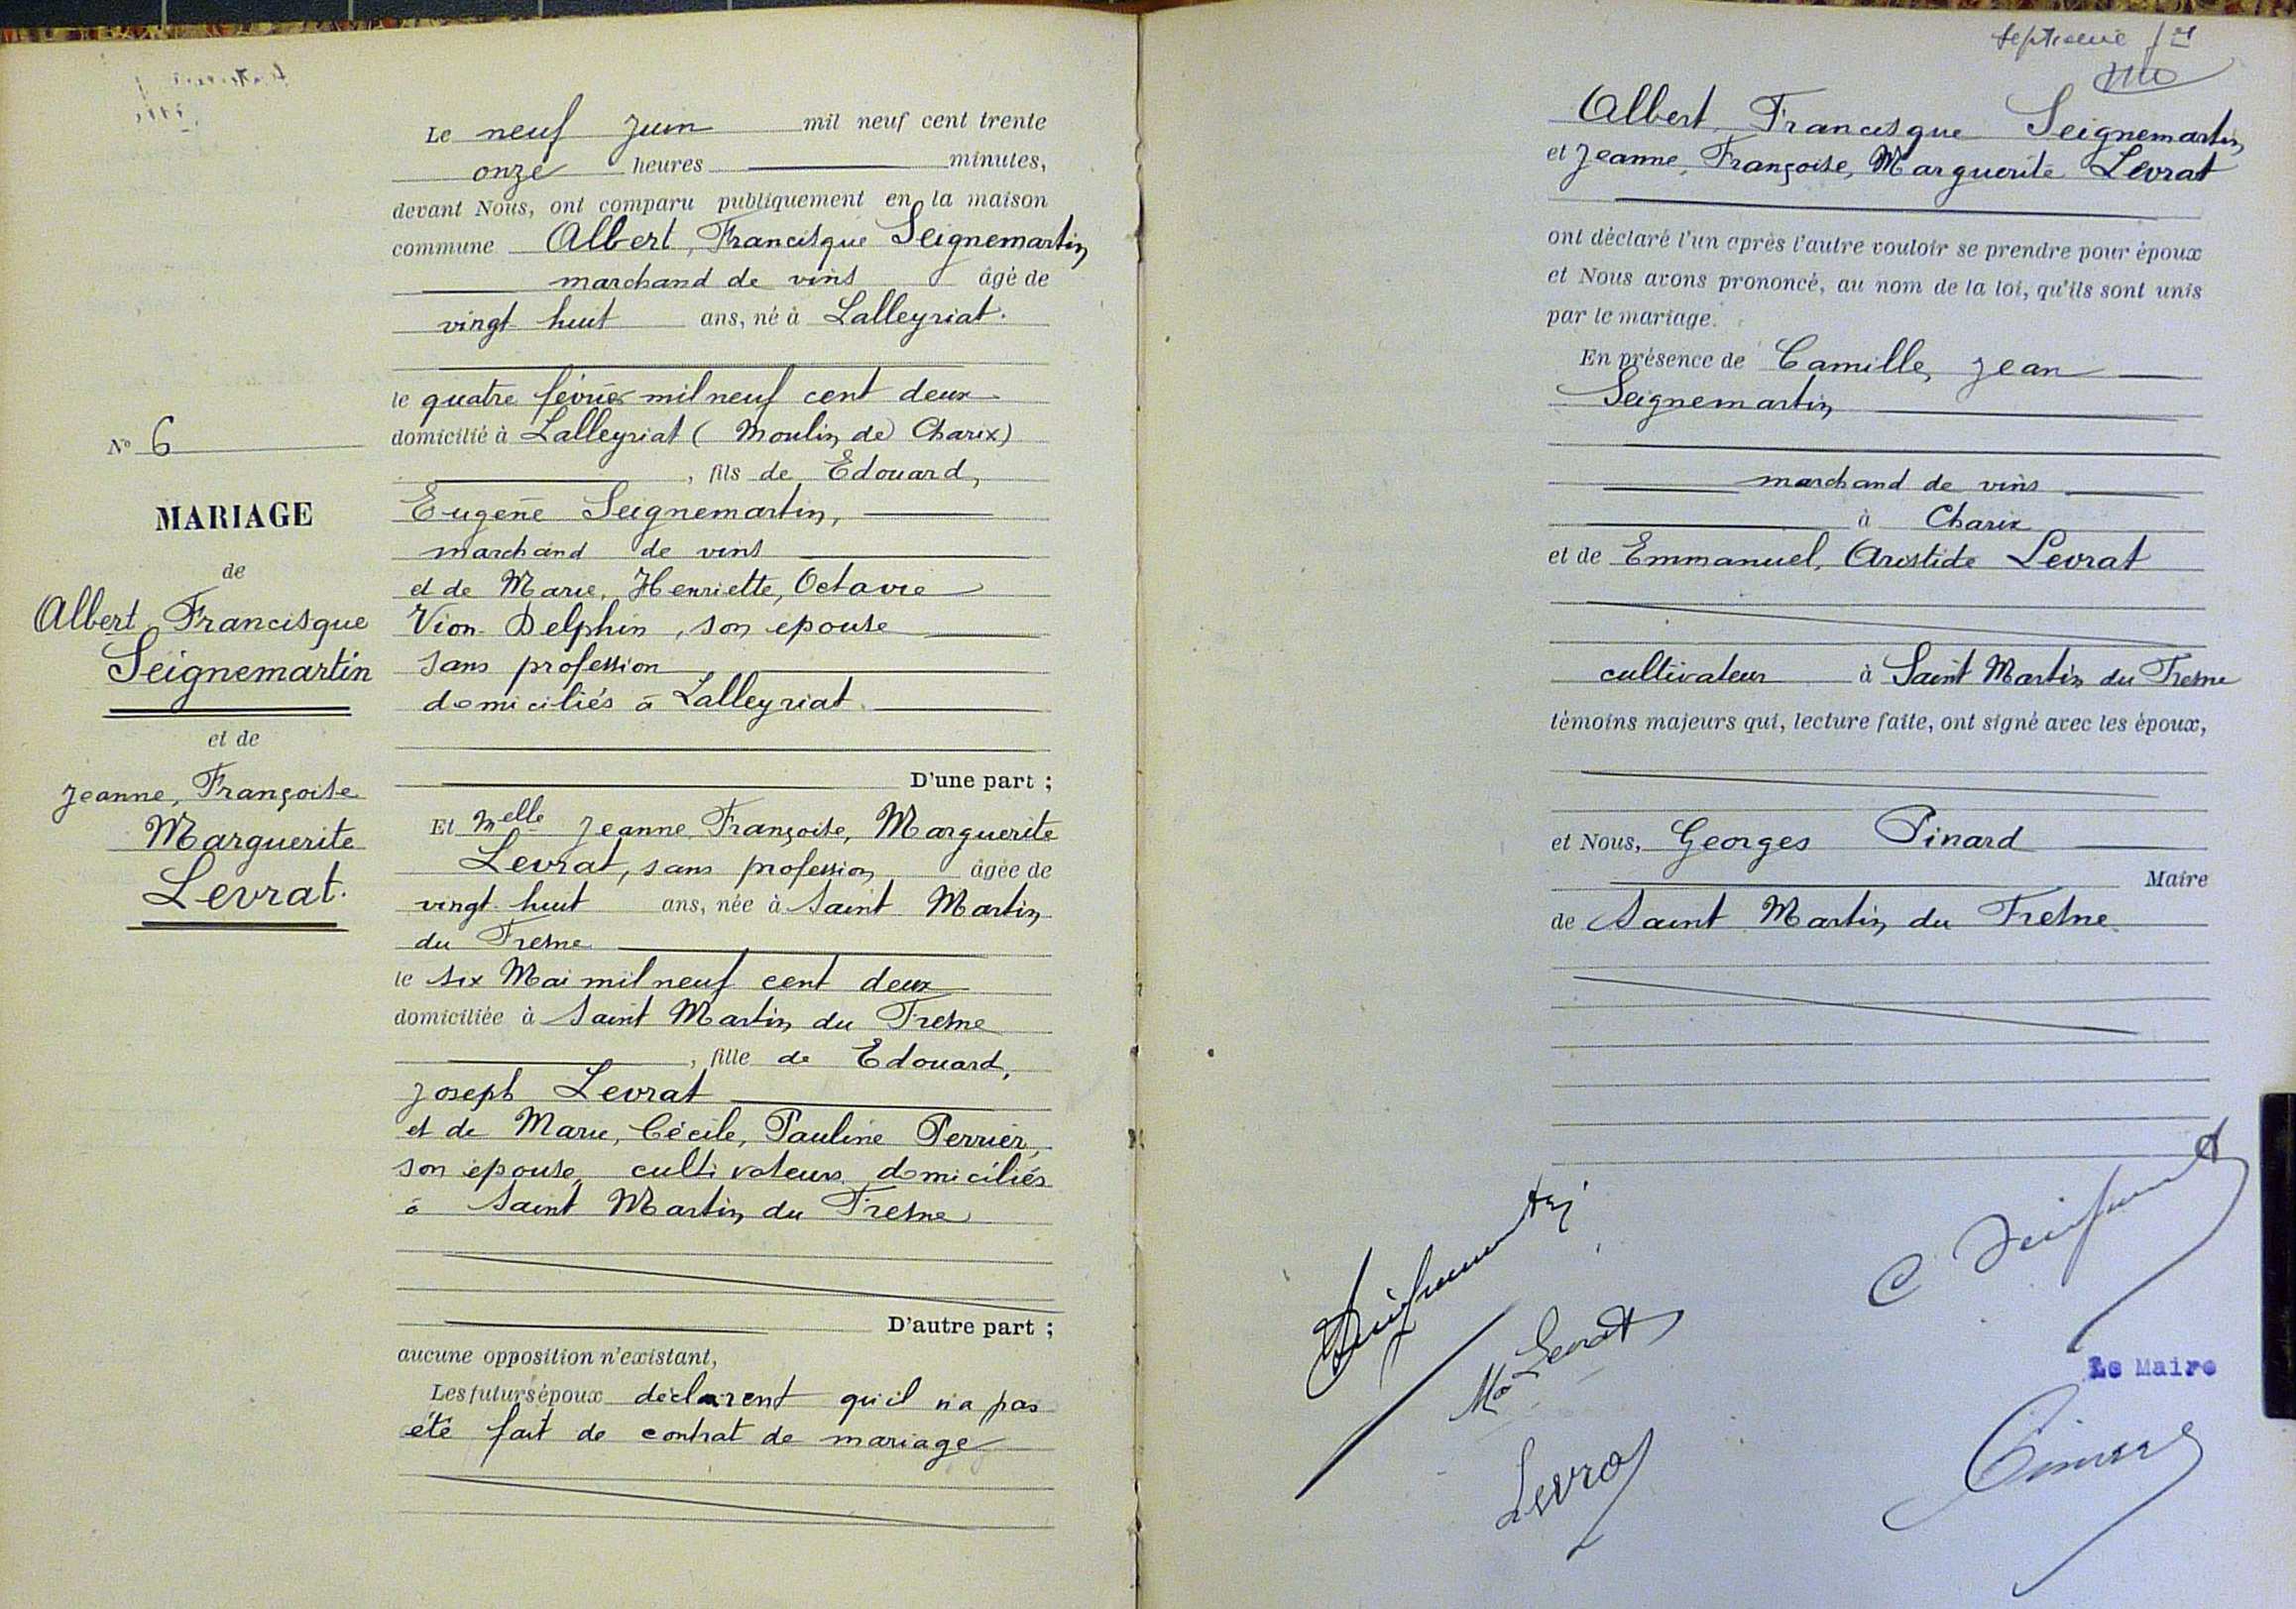 N° 6
MARIAGE
de
Albert Francisque
Seignemartin
et de
Jeanne, Françoise
Marguerite
Levrat.
Le neuf Juin mil neuf cent trente
onze heures minutes,
devant Nous, ont comparu publiquement en la maison
commune Albert, Francisque Seignemartin
marchand de vins âgé de
vingt huit ans, né à Lalleyriat.
le quatre février mil neuf cent deux
domicilié à Lalleyriat (Moulin de Charix)
, fils de Edouard,
Eugène Seignemartin,
marchand de vins
et de Marie, Henriette, Octavie
Vion-Delphin, son épouse
sans profession
domiciliés à Lalleyriat
D'une part ;
Et Melle Jeanne, Françoise, Marguerite
Levrat, sans profession âgée de
vingt-huit ans, née à Saint Martin
du Fresne
le six Mai mil neuf cent deux
domiciliée à Saint Martin du Fresne
, fille de Edouard,
Joseph Levrat
et de Marie, Cécile, Pauline Perrier,
son épouse, cultivateurs domiciliés
à Saint Martin du Fresne
D'autre part ;
aucune opposition n'existant,
Les futurs époux déclarent qu'il n'a pas
été fait de contrat de mariage
Albert, Francisque Seignemartin
et Jeanne, Françoise, Marguerite Levrat
ont déclaré l'un après l'autre vouloir se prendre pour époux
et Nous avons prononcé, au nom de la loi, qu'ils sont unis
par le mariage.
En présence de Camille, Jean
Seignemartin
marchand de vins
à Charix
et de Emmanuel, Aristide Levrat
cultivateur à Saint Martin du Fresne
témoins majeurs qui, lecture faite, ont signé avec les époux,
et Nous, Georges Pinard
Maire
de Saint Martin du Fresne
Seignemartin
C Seignemart
Ma Levrat
Le Maire
Levrat
Pinard